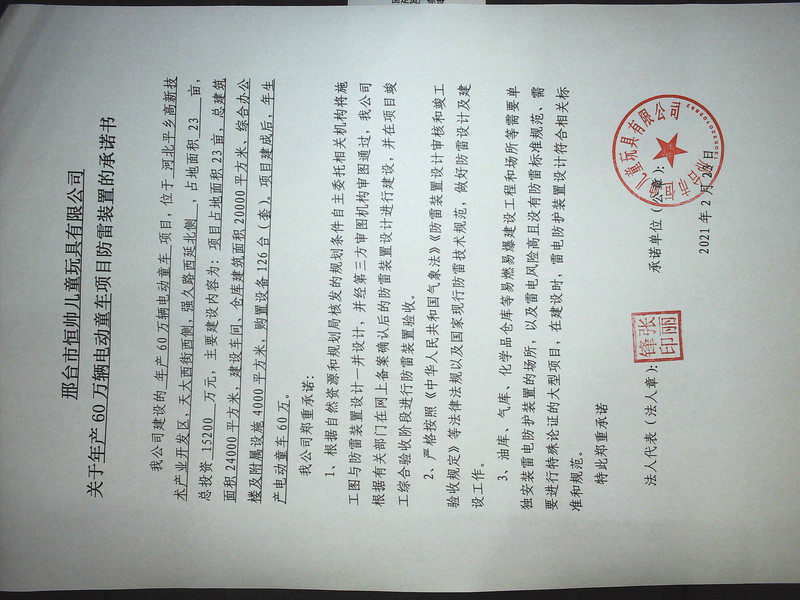 邢台市恒帅儿童玩具有限公司
关于年产60万辆电动童车项目防雷装置的承诺书
我公司建设的 年产60万辆电动童车 项目，位于 河北平乡高新技
术产业开发区，天大西街西侧，强久路西延北侧 ，占地面积 23 亩，
总投资 15200 万元，主要建设内容为： 项目占地面积23亩，总建筑
面积24000平方米，建设车间、仓库建筑面积20000平方米、综合办公
楼及附属设施4000平方米，购置设备126台（套）。项目建成后，年生
产电动童车60万。
我公司郑重承诺：
1、根据自然资源和规划局核发的规划条件自主委托相关机构将施
工图与防雷装置设计一并设计，并经第三方审图机构审图通过，我公司
根据有关部门在网上备案确认后的防雷装置设计进行建设，并在项目竣
工综合验收阶段进行防雷装置验收。
2、严格按照《中华人民共和国气象法》《防雷装置设计审核和竣工
验收规定》等法律法规以及国家现行防雷技术规范，做好防雷设计及建
设工作。
3、油库、气库、化学品仓库等易燃易爆建设工程和场所等需要单
独安装雷电防护装置的场所，以及雷电风险高且没有防雷标准规范、需
要进行特殊论证的大型项目，在建设时，雷电防护装置设计符合相关标
准和规范。
特此郑重承诺
承诺单位（公章）：
法人代表（法人章）：
张丽
锋印
2021年2月2日